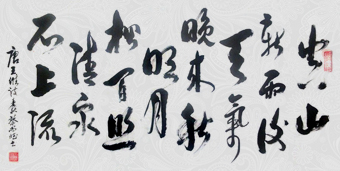 空山
新雨後
天氣
晚来秋
明月
松间照
清泉
石上流
唐王维诗